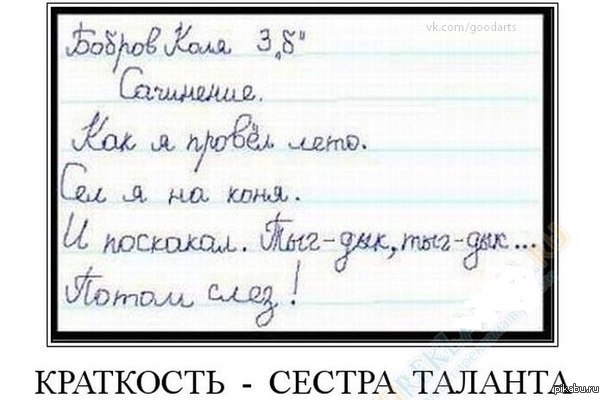 vk.com/goodarts
Бобров Коля 3 „б"
Сочинение.
Как я провёл лето.
Сел я на коня.
И поскакал. Тыг-дык, тыг-дык...
Потом слез!
КРАТКОСТЬ - СЕСТРА ТАЛАНТА
pikabu.ru